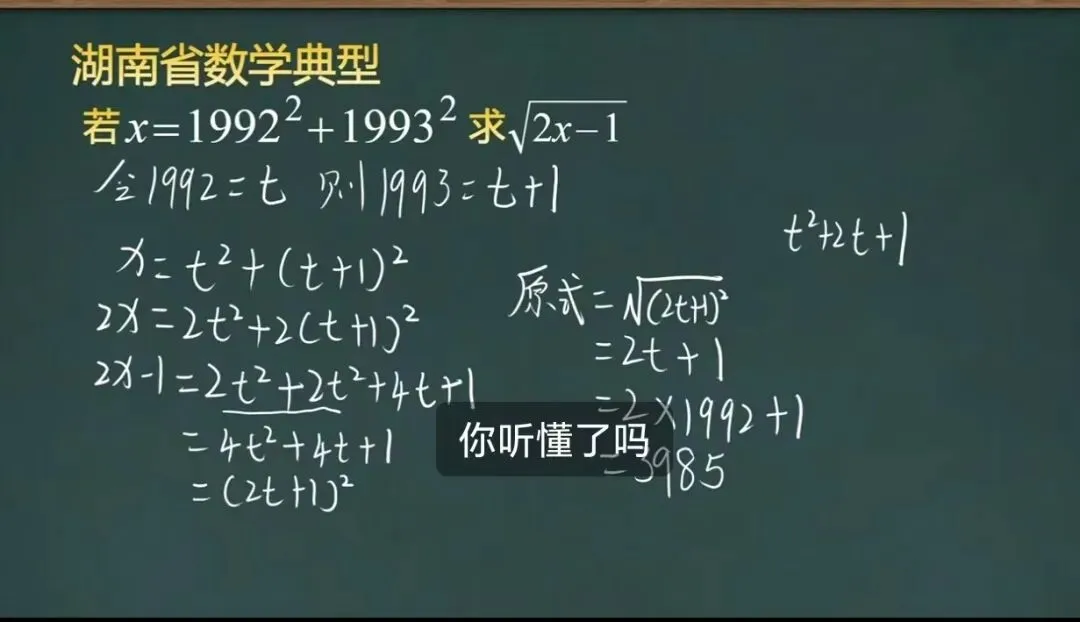 湖南省数学典型
若x=1992²+1993² 求√(2x-1)
令1992=t 则1993=t+1
x=t²+(t+1)²
2x=2t²+2(t+1)²
2x-1=2t²+2t²+4t+1
=4t²+4t+1
=(2t+1)²
t²+2t+1
原式=√(2t+1)²
=2t+1
=2×1992+1
=3985
你听懂了吗